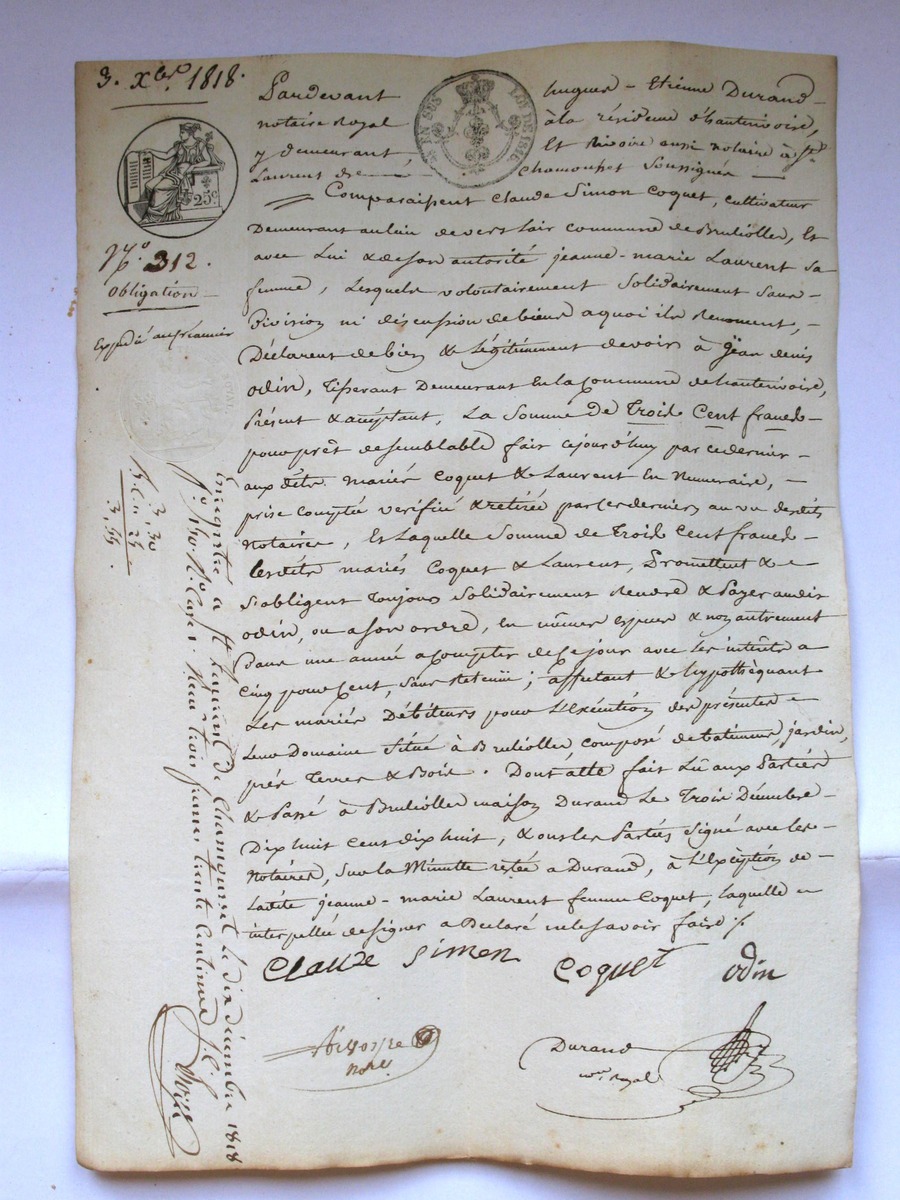 3. Xbre 1818.
EN SUS LOI DE 1816
25c
No. 312.
Obligation
Expédié au prémier
Pardevant hugues-Etienne Durand
notaire Royal à la résidence d'hauterivoire,
y demeurant, Et Rivoire aussi notaire à St
Laurent de Chamousset Soussignés
Comparaissent Claude Simon Coquet, cultivateur
Demeurant au lieu de vers loir commune de Brulliolles, Et
avec Lui & de son autorité jeanne-marie Laurent sa
femme, Lesquels volontairement Solidairement Sans
Division ni discussion de biens a quoi ils Renoncent,
Déclarent de bien & Légitimement devoir à jean denis
odin, tisserant Demeurant En la Commune de hauterivoire,
Présent & acceptant, La Somme de Trois Cent francs
pour prêt de semblable fait cejourd'huy par ce dernier
aux dits mariés Coquet & Laurent En Numeraire,
prise comptée verifiée & retirée par ces derniers au vu desdits
Notaires, Et Laquelle Somme de Trois Cent francs
lesdits mariés Coquet & Laurent, Promettent &
s'obligent Toujours Solidairement Rendre & Payer audit
odin, ou a son ordre, En mêmes Espèces & non autrement
Dans une année a compter de ce jour avec les intérêts a
Cinq pour Cent, Sans Retenue; affectant & hypothèquant
Les mariés Débiteurs pour L'Exécution des présentes
Leur Domaine Situé à Brulliolles composé de batiments, jardin,
prés Terres & Bois. Dont acte fait Lû aux Parties
& Passé à Brulliolles maison Durand Le Trois Décembre
Dix huit Cent dix huit, & ont les Parties Signé avec les
Notaires, Sur la Minutte restée a Durand, à L'Exception de
Ladite jeanne-marie Laurent femme Coquet, laquelle
interpellée de signer a Déclaré ne le savoir faire ./.
Claude Simon Coquet odin
Rivoire Nore
Durand
nore Royal
Enregistré a St Laurent de Chamousset le dix décembre 1818
fo. 140. Ro. Case 1. Reçu trois francs trente centimes
3,30